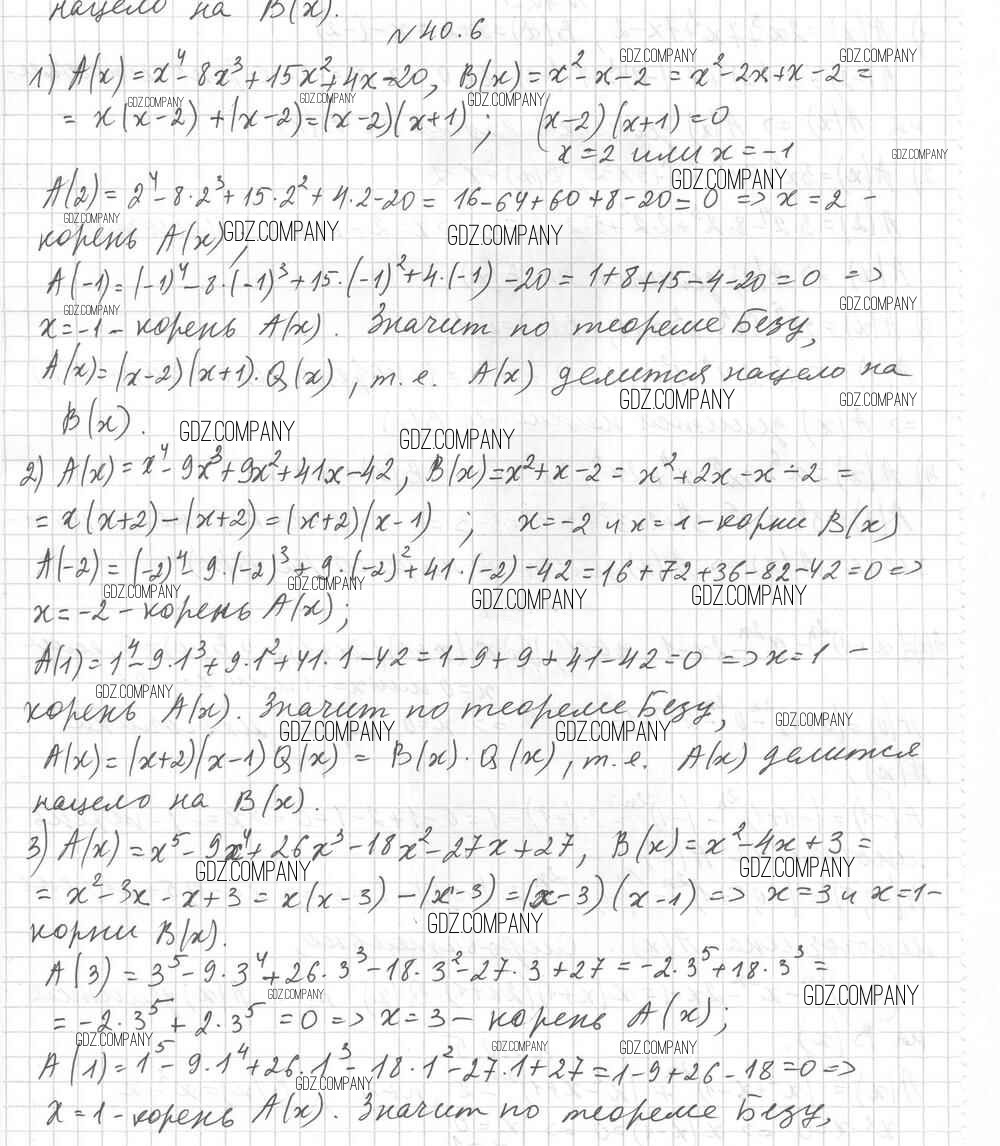 нацело на B(x).
№40.6
1) A(x) = x⁴ - 8x³ + 15x² + 4x - 20, B(x) = x² - x - 2 = x² - 2x + x - 2 =
= x(x-2) + (x-2) = (x-2)(x+1) ; (x-2)(x+1) = 0
x = 2 или x = -1
A(2) = 2⁴ - 8·2³ + 15·2² + 4·2 - 20 = 16 - 64 + 60 + 8 - 20 = 0 => x = 2 -
корень A(x) ;
A(-1) = (-1)⁴ - 8·(-1)³ + 15·(-1)² + 4·(-1) - 20 = 1 + 8 + 15 - 4 - 20 = 0 =>
x = -1 - корень A(x). Значит по теореме Безу,
A(x) = (x-2)(x+1)·Q(x), т.е. A(x) делится нацело на
B(x).
2) A(x) = x⁴ - 9x³ + 9x² + 41x - 42, B(x) = x² + x - 2 = x² + 2x - x - 2 =
= x(x+2) - (x+2) = (x+2)(x-1) ; x = -2 и x = 1 - корни B(x)
A(-2) = (-2)⁴ - 9·(-2)³ + 9·(-2)² + 41·(-2) - 42 = 16 + 72 + 36 - 82 - 42 = 0 =>
x = -2 - корень A(x);
A(1) = 1⁴ - 9·1³ + 9·1² + 41·1 - 42 = 1 - 9 + 9 + 41 - 42 = 0 => x = 1 -
корень A(x). Значит по теореме Безу,
A(x) = (x+2)(x-1)Q(x) = B(x)·Q(x), т.е. A(x) делится
нацело на B(x).
3) A(x) = x⁵ - 9x⁴ + 26x³ - 18x² - 27x + 27, B(x) = x² - 4x + 3 =
= x² - 3x - x + 3 = x(x-3) - (x-3) = (x-3)(x-1) => x = 3 и x = 1 -
корни B(x).
A(3) = 3⁵ - 9·3⁴ + 26·3³ - 18·3² - 27·3 + 27 = -2·3⁵ + 18·3³ =
= -2·3⁵ + 2·3⁵ = 0 => x = 3 - корень A(x);
A(1) = 1⁵ - 9·1⁴ + 26·1³ - 18·1² - 27·1 + 27 = 1 - 9 + 26 - 18 = 0 =>
x = 1 - корень A(x). Значит по теореме Безу,